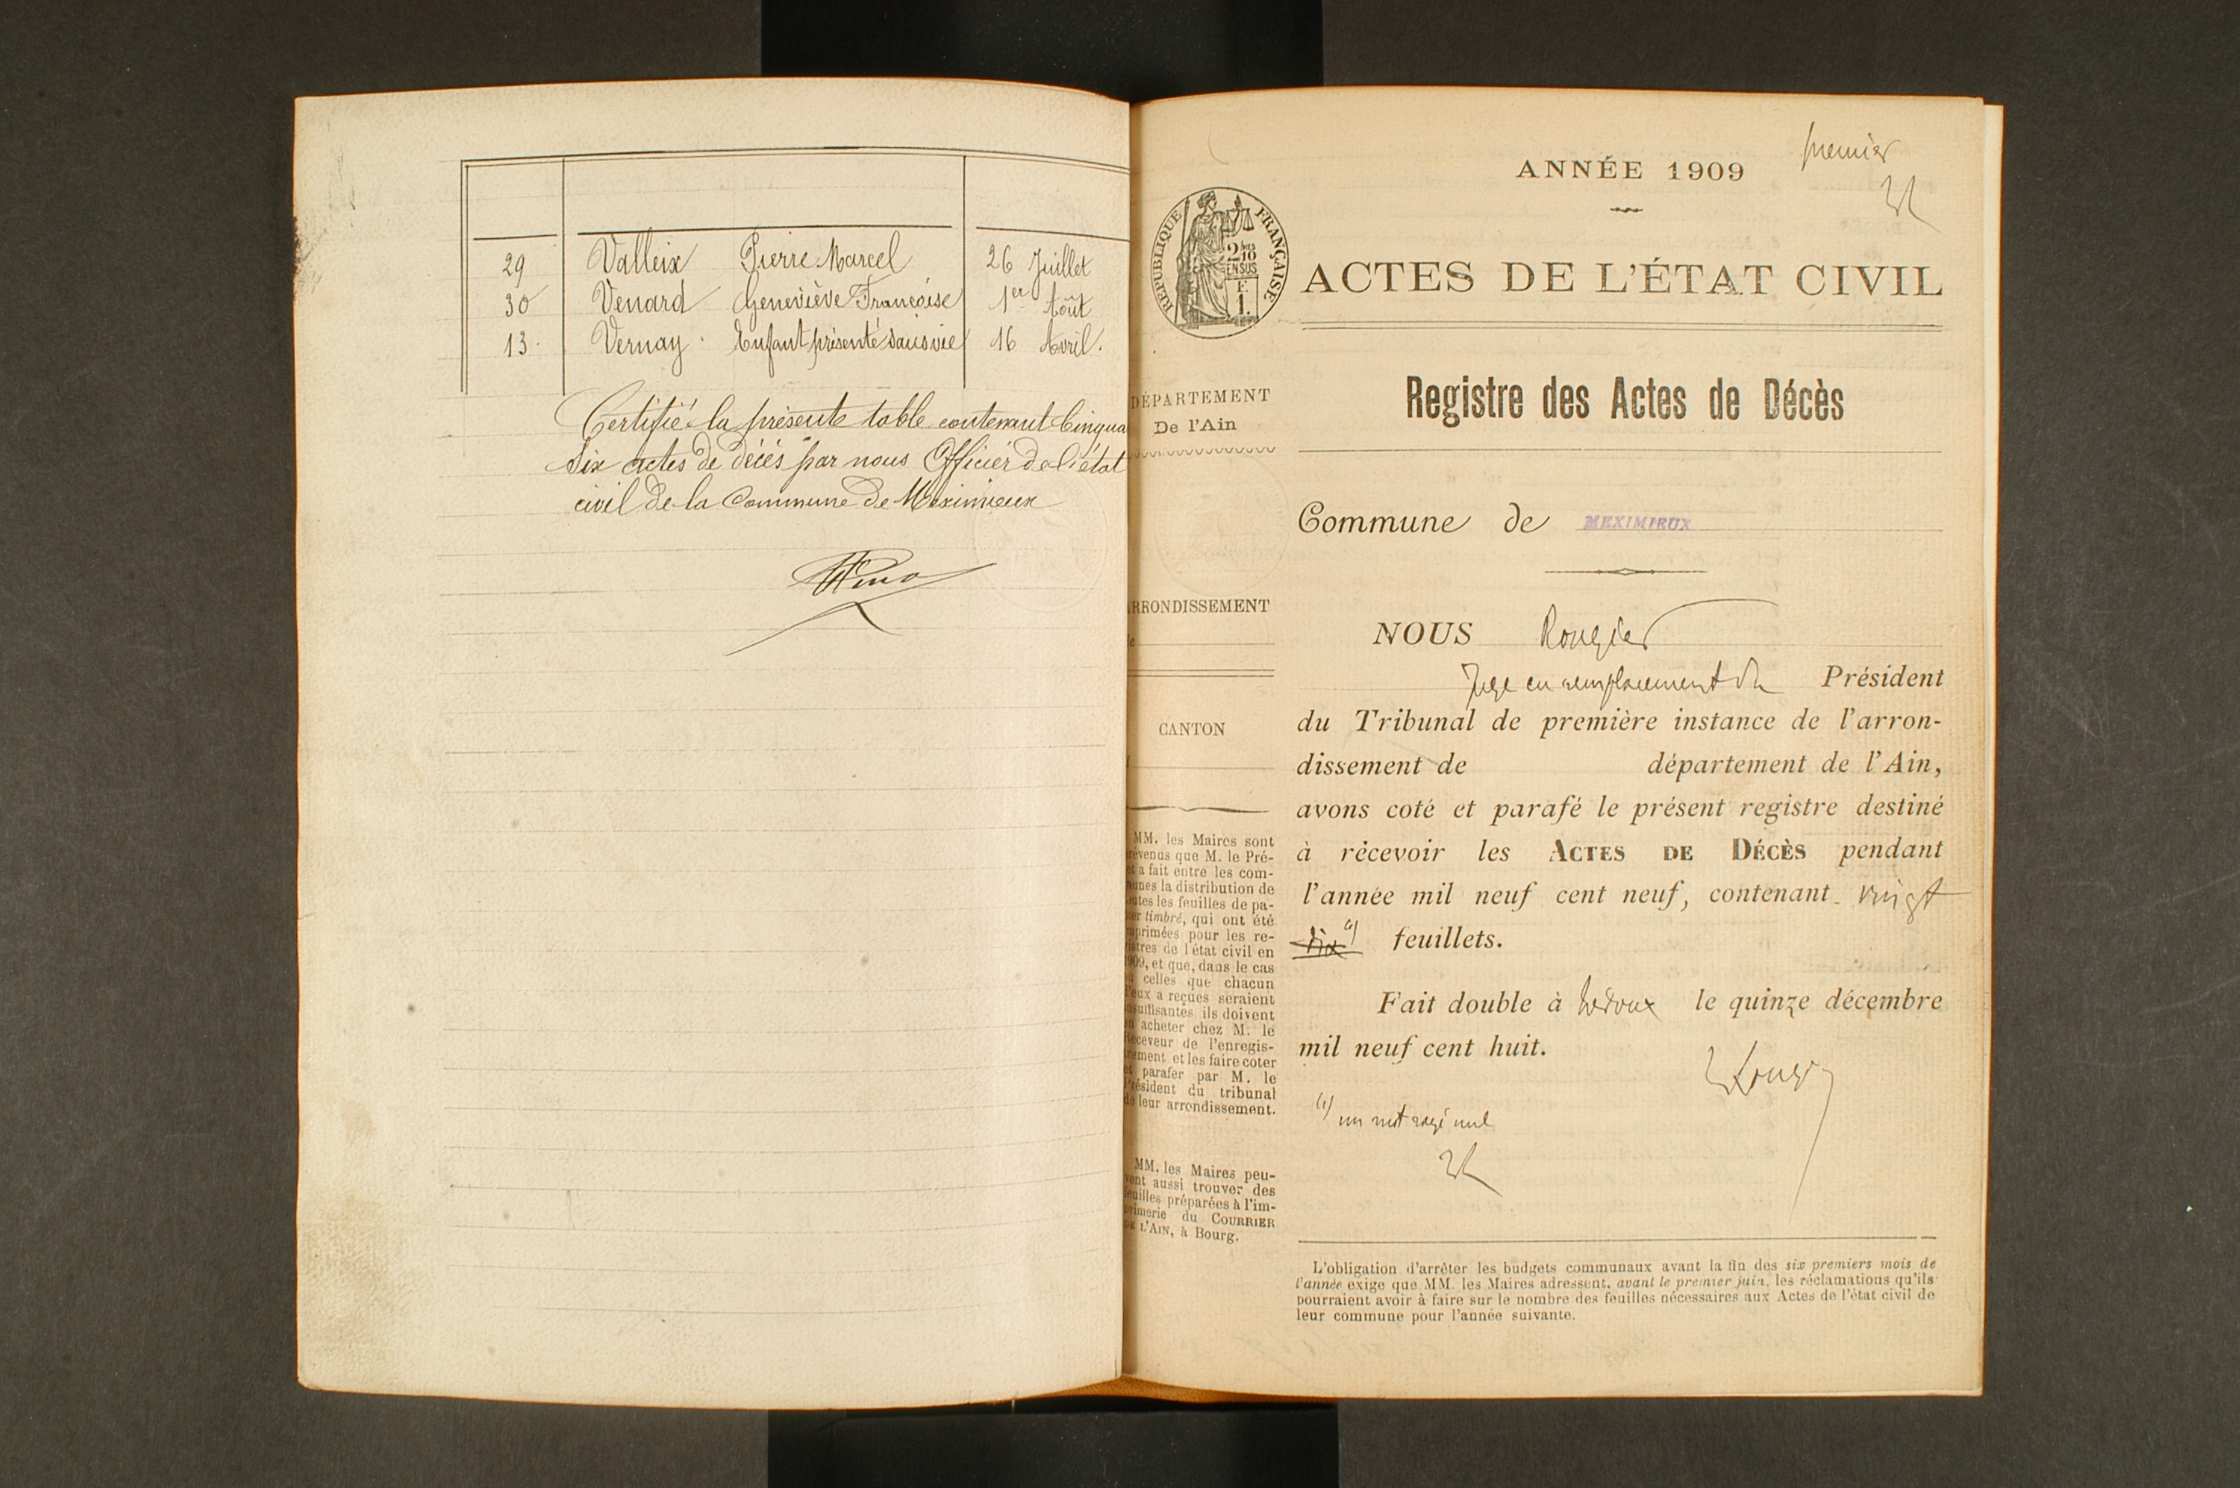 29 Valleix Pierre Marcel 26 Juillet
30 Venard Geneviève Françoise 1er Août
13 Vernay Enfant présenté sans vie 16 Avril.
Certifié la présente table contenant Cinqua
Six actes de décès par nous Officier de l'état
civil de la Commune de Meximieux
premier
ANNÉE 1909
RÉPUBLIQUE FRANÇAISE
2 10
EN SUS
ACTES DE L'ÉTAT CIVIL
Registre des Actes de Décès
DÉPARTEMENT
De l'Ain
Commune de MEXIMIEUX
RRONDISSEMENT
CANTON
MM. les Maires sont
révenus que M. le Pré-
t a fait entre les com-
unes la distribution de
utes les feuilles de pa-
er timbré, qui ont été
mprimées pour les re-
istres de l'état civil en
909, et que, dans le cas
ù celles que chacun
d'eux a reçues seraient
nsuffisantes ils doivent
n acheter chez M. le
Receveur de l'enregis-
trement et les faire coter
et parafer par M. le
Président du tribunal
de leur arrondissement.
MM. les Maires peu-
vent aussi trouver des
feuilles préparées à l'im-
primerie du COURRIER
DE L'AIN, à Bourg.
NOUS Rougier
Juge en remplacement du Président
du Tribunal de première instance de l'arron-
dissement de département de l'Ain,
avons coté et parafé le présent registre destiné
à recevoir les ACTES DE DÉCÈS pendant
l'année mil neuf cent neuf, contenant vingt
dix (1) feuillets.
Fait double à Trévoux le quinze décembre
mil neuf cent huit.
(1) un mot rayé nul
L'obligation d'arrêter les budgets communaux avant la fin des six premiers mois de
l'année exige que MM. les Maires adressent, avant le premier juin, les réclamations qu'ils
pourraient avoir à faire sur le nombre des feuilles nécessaires aux Actes de l'état civil de
leur commune pour l'année suivante.